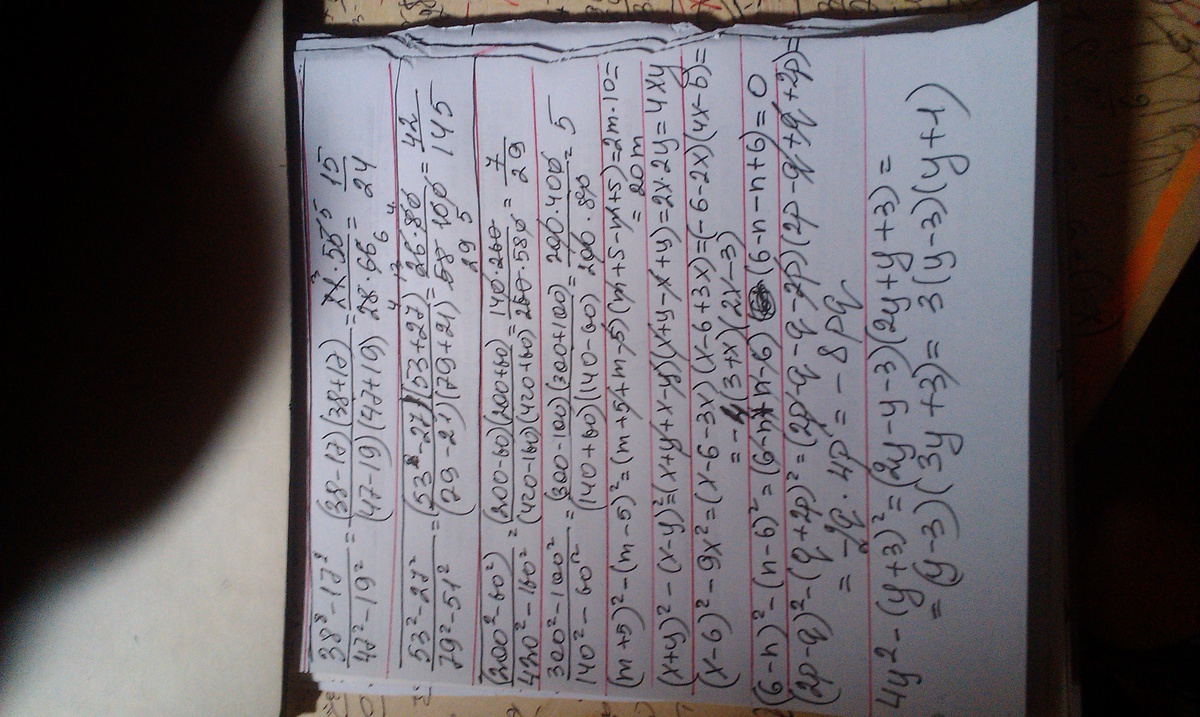 38² - 17² / 47² - 19² = (38-17)(38+17) / (47-19)(47+19) = 21·55 / 28·66 = 15 / 24
53² - 27² / 79² - 51² = (53-27)(53+27) / (79-21)(79+21) = 26·80 / 58·100 = 42 / 145
(200² - 60²) / 420² - 160² = (200-60)(200+60) / (420-160)(420+160) = 140·260 / 260·580 = 7 / 29
300² - 100² / 140² - 60² = (300-100)(300+100) / (140+60)(140-60) = 200·400 / 200·80 = 5
(m+5)² - (m-5)² = (m+5+m-5)(m+5-m+5) = 2m·10 =
= 20m
(x+y)² - (x-y)² = (x+y+x-y)(x+y-x+y) = 2x·2y = 4xy
(x-6)² - 9x² = (x-6-3x)(x-6+3x) = (-6-2x)(4x-6) =
= -4(3+x)(2x-3)
(6-n)² - (n-6)² = (6-n+n-6)(6-n-n+6) = 0
(2p-q)² - (q+2p)² = (2p-q-q-2p)(2p-q+q+2p) =
= -2q·4p = -8pq
4y² - (y+3)² = (2y-y-3)(2y+y+3) =
= (y-3)(3y+3) = 3(y-3)(y+1)